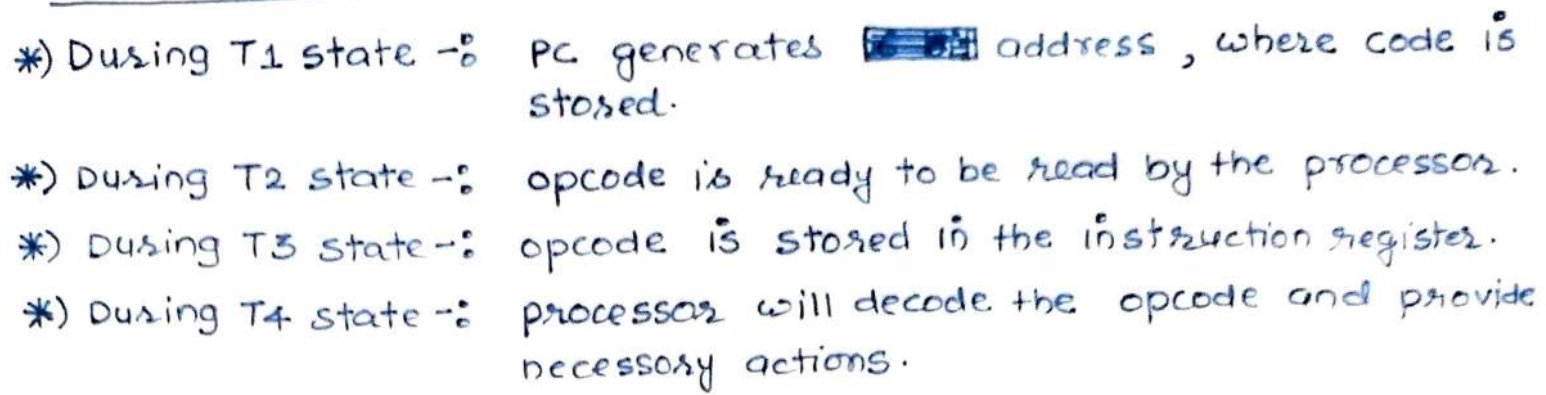 *) During T1 state -: PC generates address, where code is
stored.
*) During T2 state -: opcode is ready to be read by the processor.
*) During T3 state -: opcode is stored in the instruction register.
*) During T4 state -: processor will decode the opcode and provide
necessory actions.